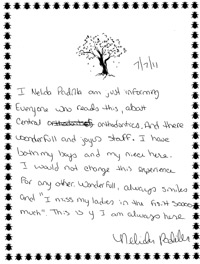 7/7/11
I Nelida Padilla am just informing
Everyone who reads this, about
Central orthodontics. And there
wonderfull and joyus staff. I have
both my boys and my niece here.
I would not change this experience
for any other. Wonderfull, always smiles
and "I miss my ladies in the first
much". This is y I am always here
Nelida Padilla